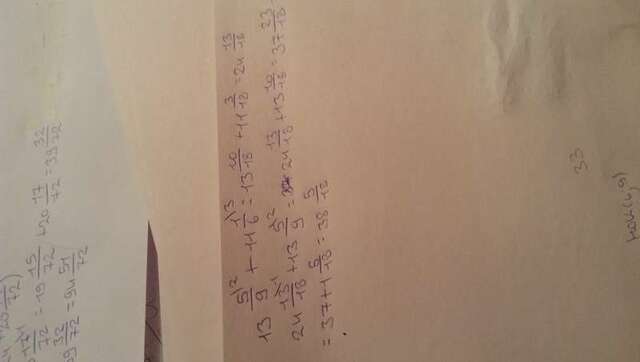 72 = 19 15/72 + 20 17/72 = 39 32/72
32/72 = 94 51/72
13 5/9 + 11 1/6 = 13 10/18 + 11 3/18 = 24 13/18
24 13/18 + 13 5/9 = 24 13/18 + 13 10/18 = 37 23/18 =
= 37 + 1 5/18 = 38 5/18
33